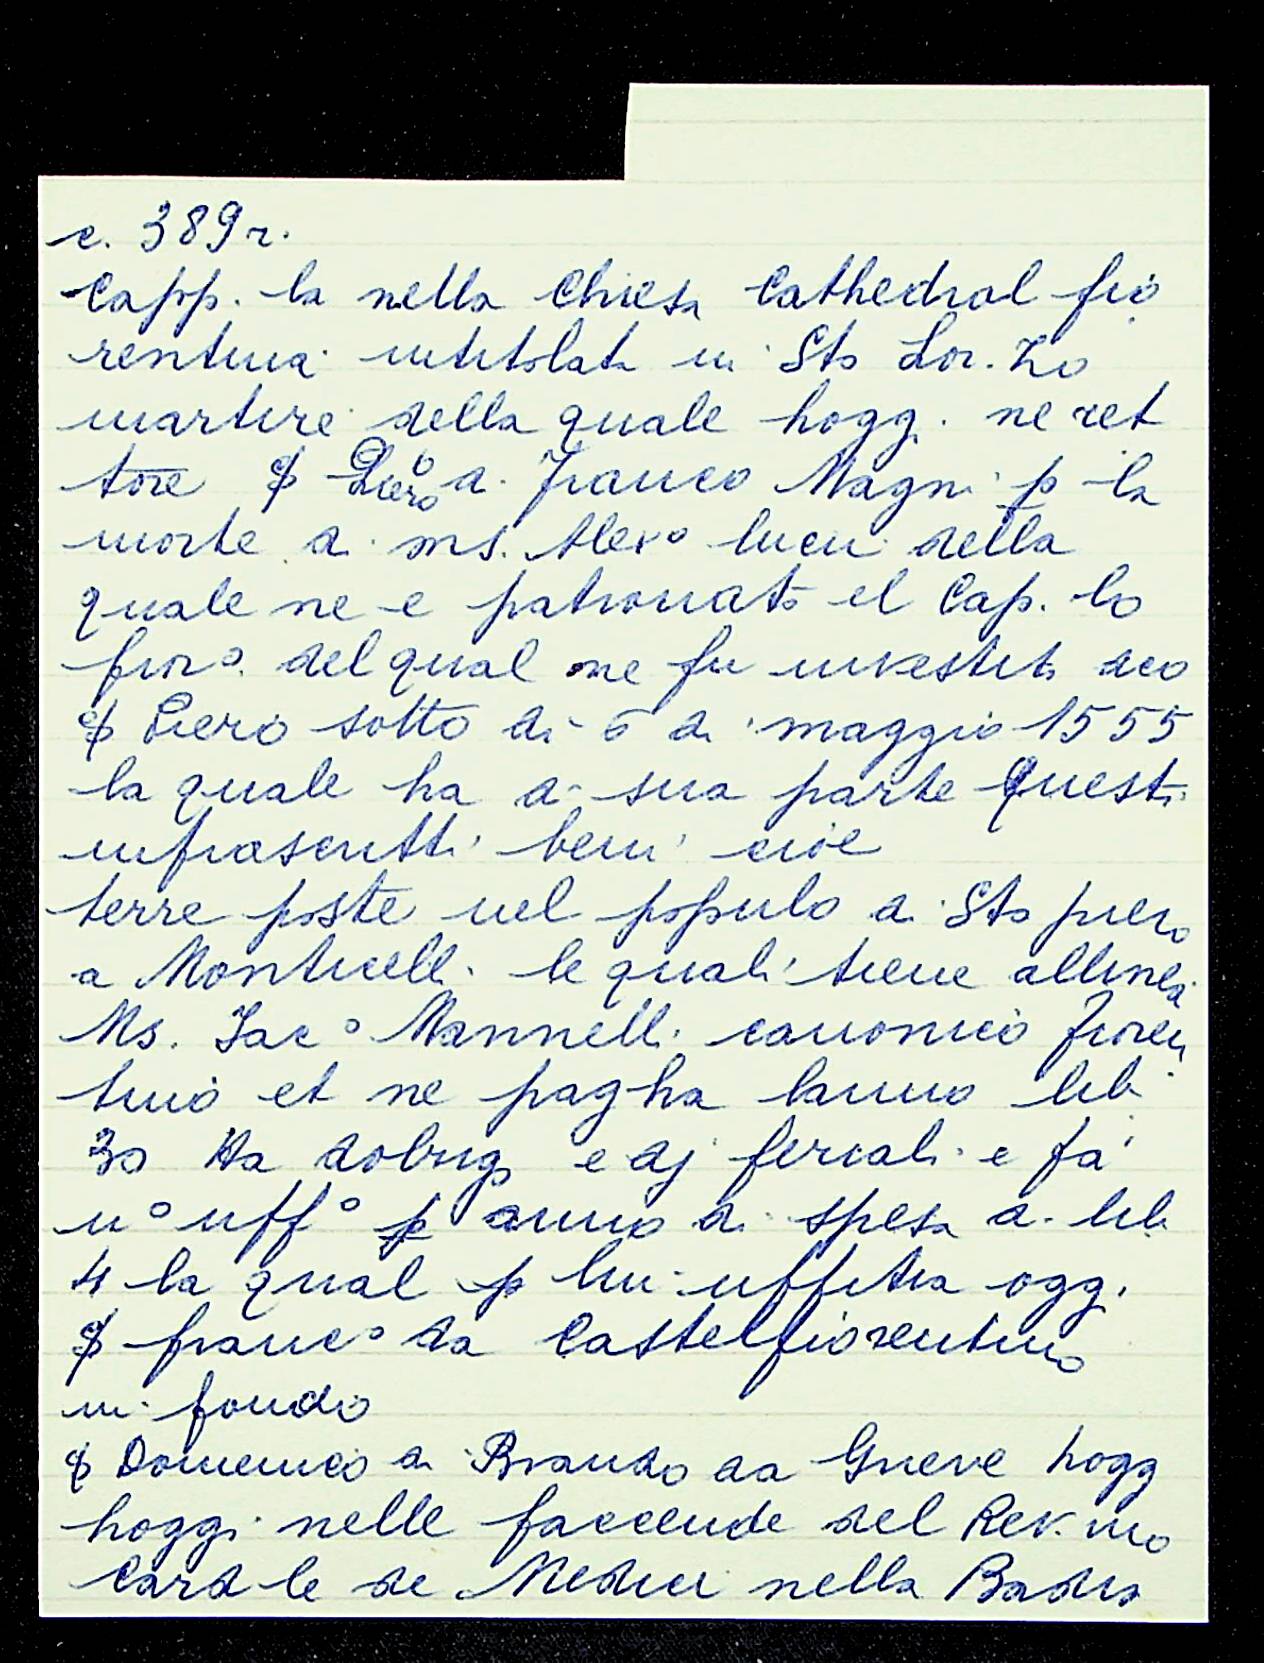 c. 389 r.
Capp. la nella Chiesa Cathedral fio
rentina intitolata in Sto Lor. zo
martire della quale hogg. ne ret
tore § Piero di Franco Magni p la
morte di ms. Aless° lucii della
quale ne e patronato el Cap. lo
fior°. del qual ne fu investito deo
§ Piero sotto di 6 di maggio 1555
la quale ha di sua parte questi
infrascritti beni cioe
terre poste nel populo di Sto piero
a Monticelli le quali tiene allinea
Ms. Jac° Mannelli canonico fioren
tino et ne pagha lanno lib
30 Ha dobrigo e dj feriali e fa
n° uff° p anno di spesa di lib
4 la qual p lui uffitia oggi
§ franc° da Castelfiorentino
in fondo
§ Domenico di Brando da Greve hogg
hoggi nelle faccende del Rev. mo
Card le de Medici nella Badia